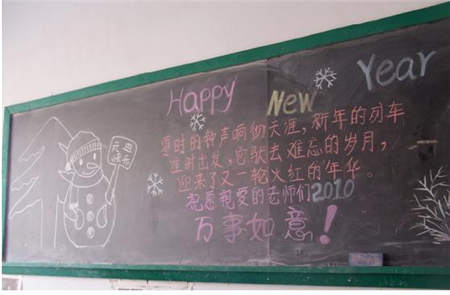 Happy New Year
零时的钟声响彻天涯，新年的列车
准时出发，它驮去难忘的岁月，
迎来了又一轮火红的年华。
祝愿亲爱的老师们2010
万事如意！
元旦
快乐